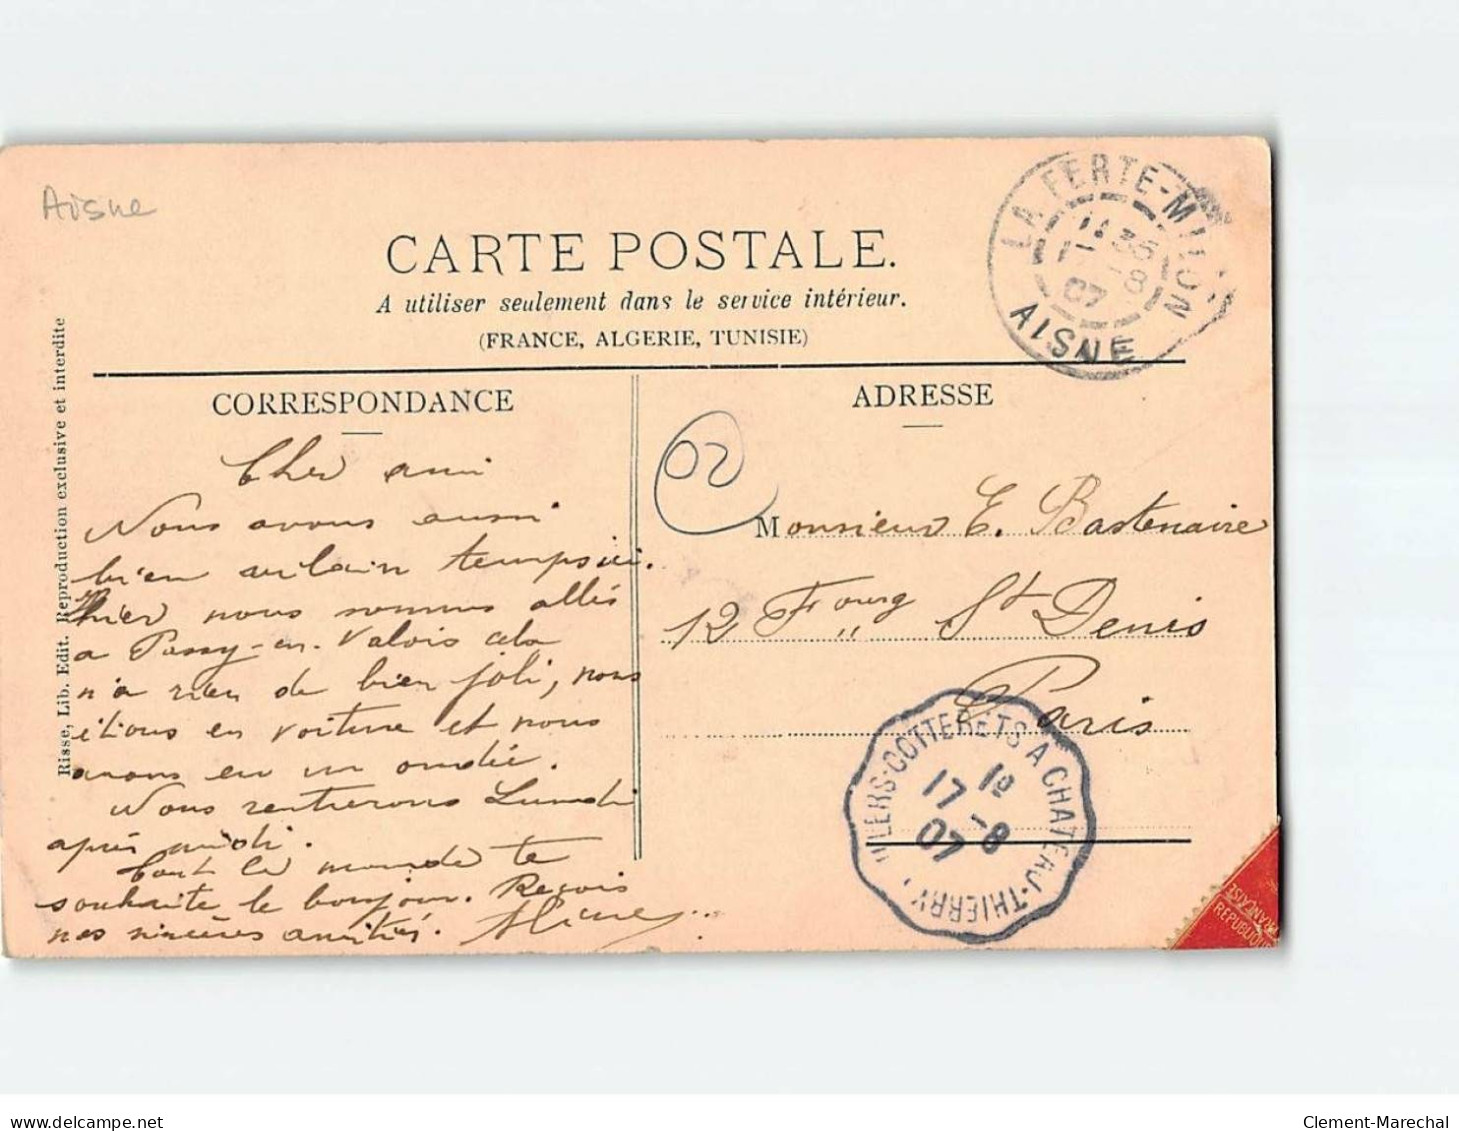 Aisne
CARTE POSTALE.
A utiliser seulement dans le service intérieur.
(FRANCE, ALGERIE, TUNISIE)
LA FERTE-MILON
11 35
17 -8
07
AISNE
Risse, Lib. Edit. Reproduction exclusive et interdite
CORRESPONDANCE
Cher ami
Nous avons aussi
bien vilain temps ici.
hier nous sommes allés
a Passy-en-Valois cela
n'a rien de bien joli, nous
étions en voiture et nous
avons eu un ondée.
Nous rentrerons Lundi
après midi.
Tout le monde te
souhaite le bonjour. Reçois
nos sincères amitiés.
ADRESSE
02
Monsieur E. Bastenaire
12 Fbourg St Denis
Paris
VILLERS-COTTERETS A CHATEAU-THIERRY
1º
17 -8
07
REPUBLIQUE
FRANÇAISE
delcampe.net
Clement-Marechal